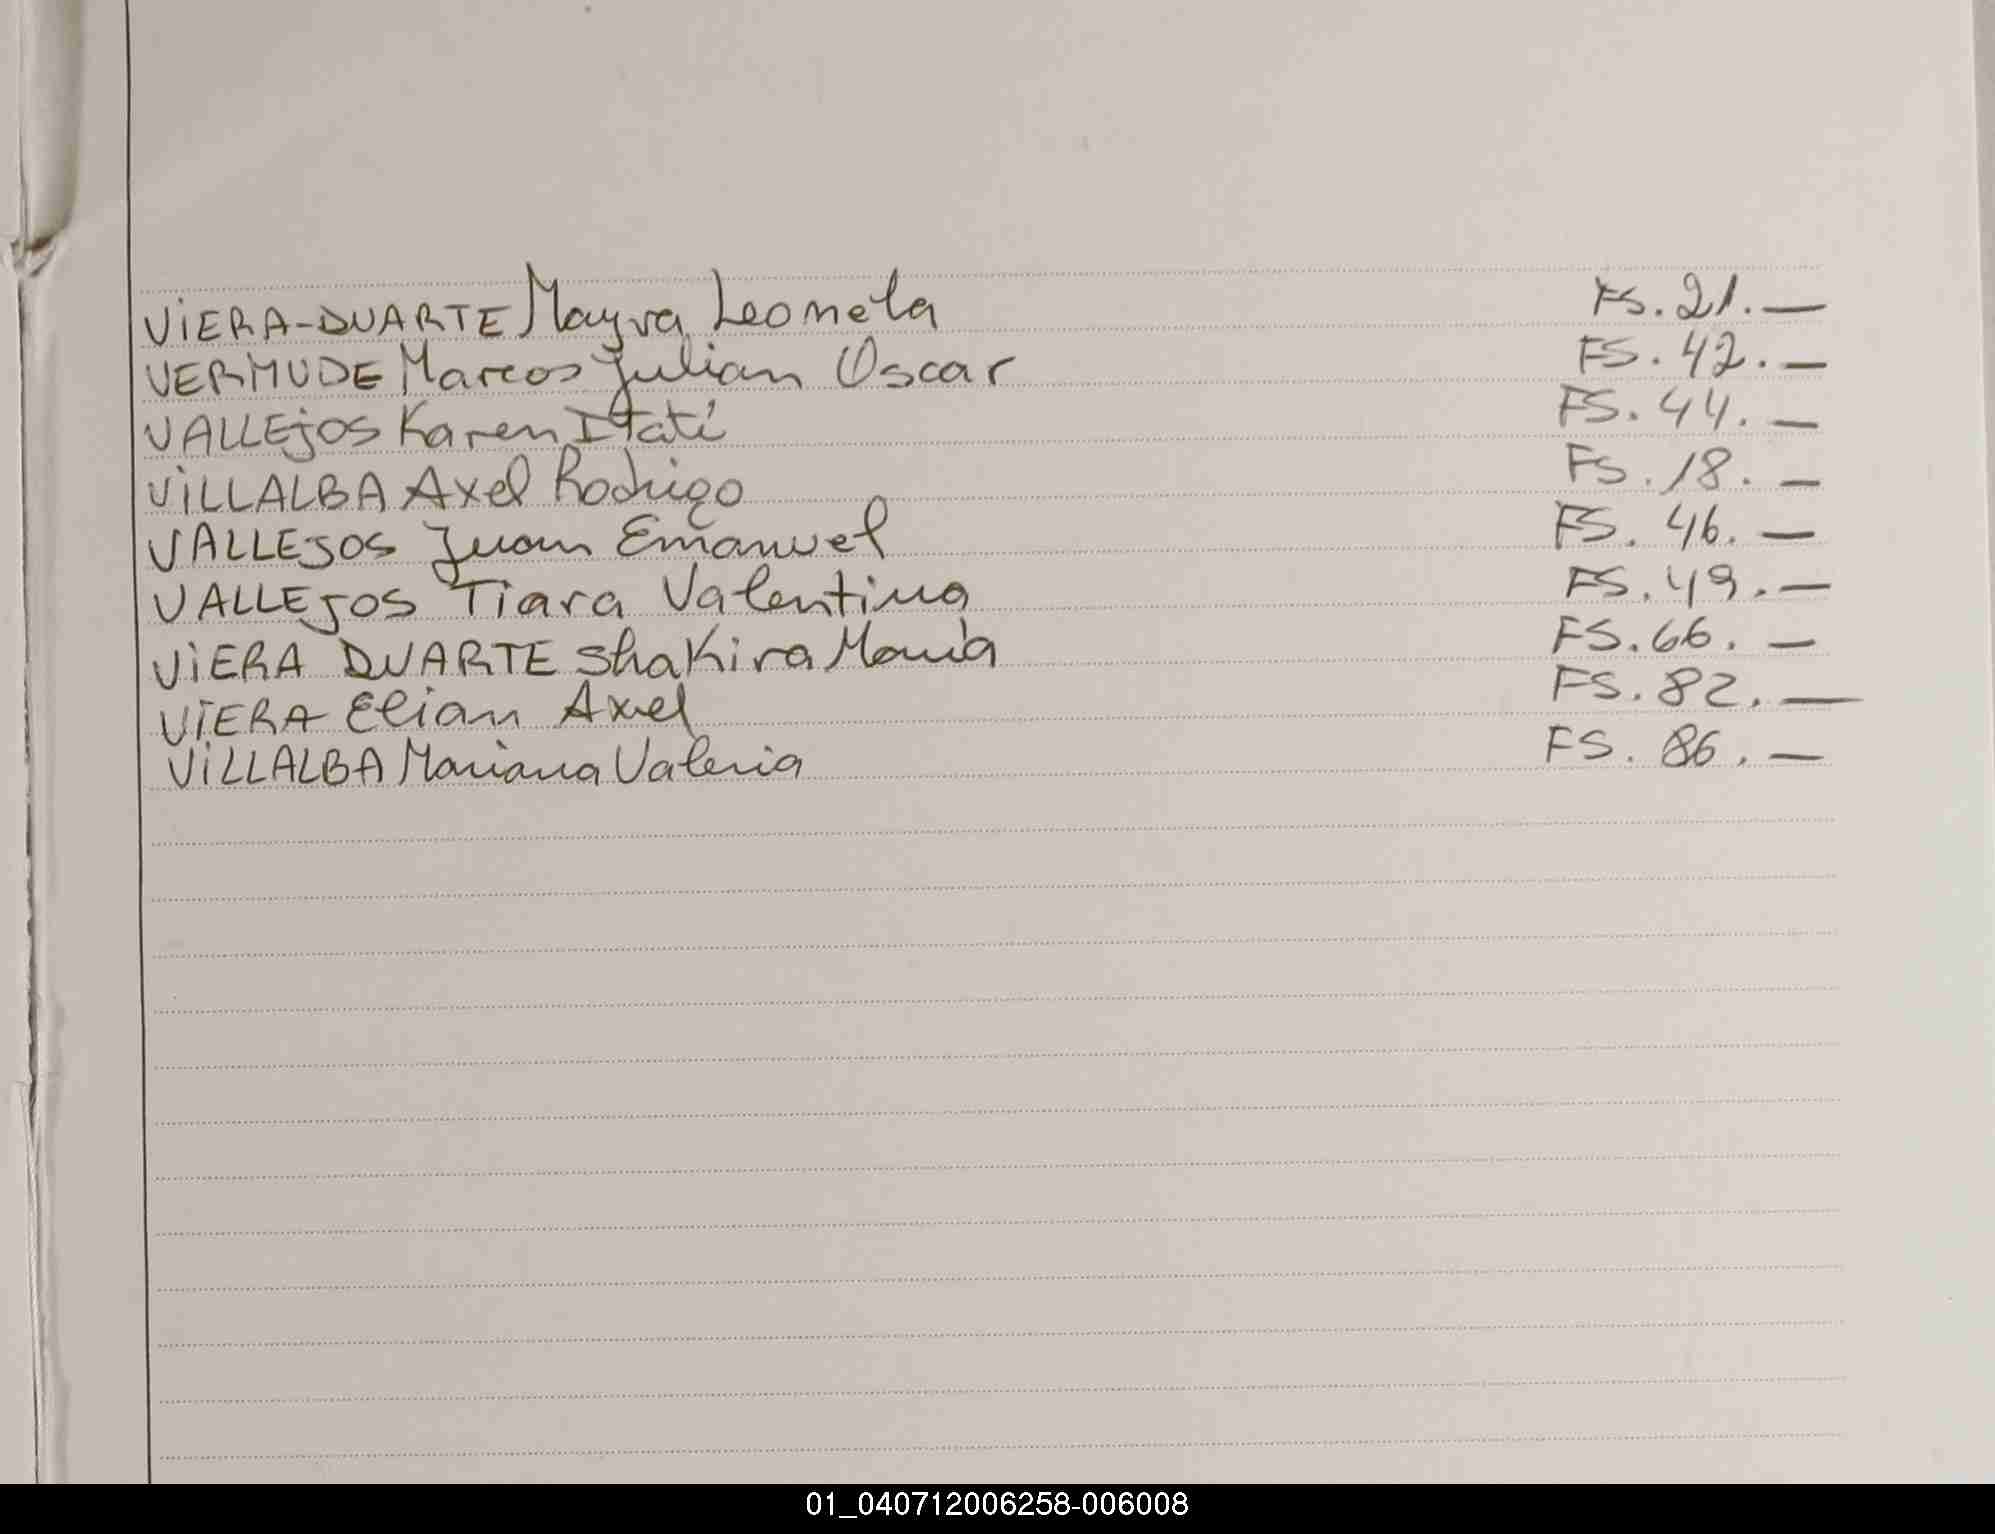 VIERA-DUARTE Mayra Leonela FS. 21. —
VERMUDE Marcos Julian Oscar FS. 42. —
VALLEjOS Karen Itatí FS. 44. —
VILLALBA Axel Rodrigo FS. 18. —
VALLEJOS Juan Emanuel FS. 46. —
VALLEJOS Tiara Valentina FS. 49. —
VIERA DUARTE Shakira María FS. 66. —
VIERA Elian Axel FS. 82. —
VILLALBA Mariana Valeria FS. 86. —
01_040712006258-006008